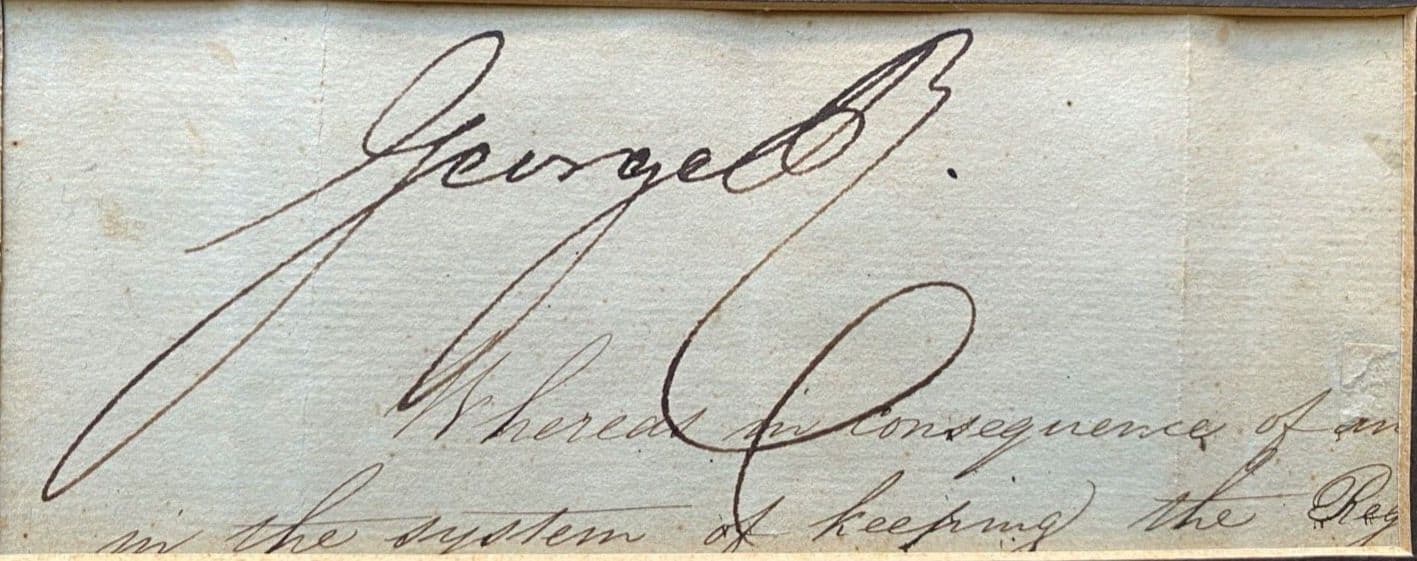 George R.
Whereas in consequence of an
in the system of keeping the Reg